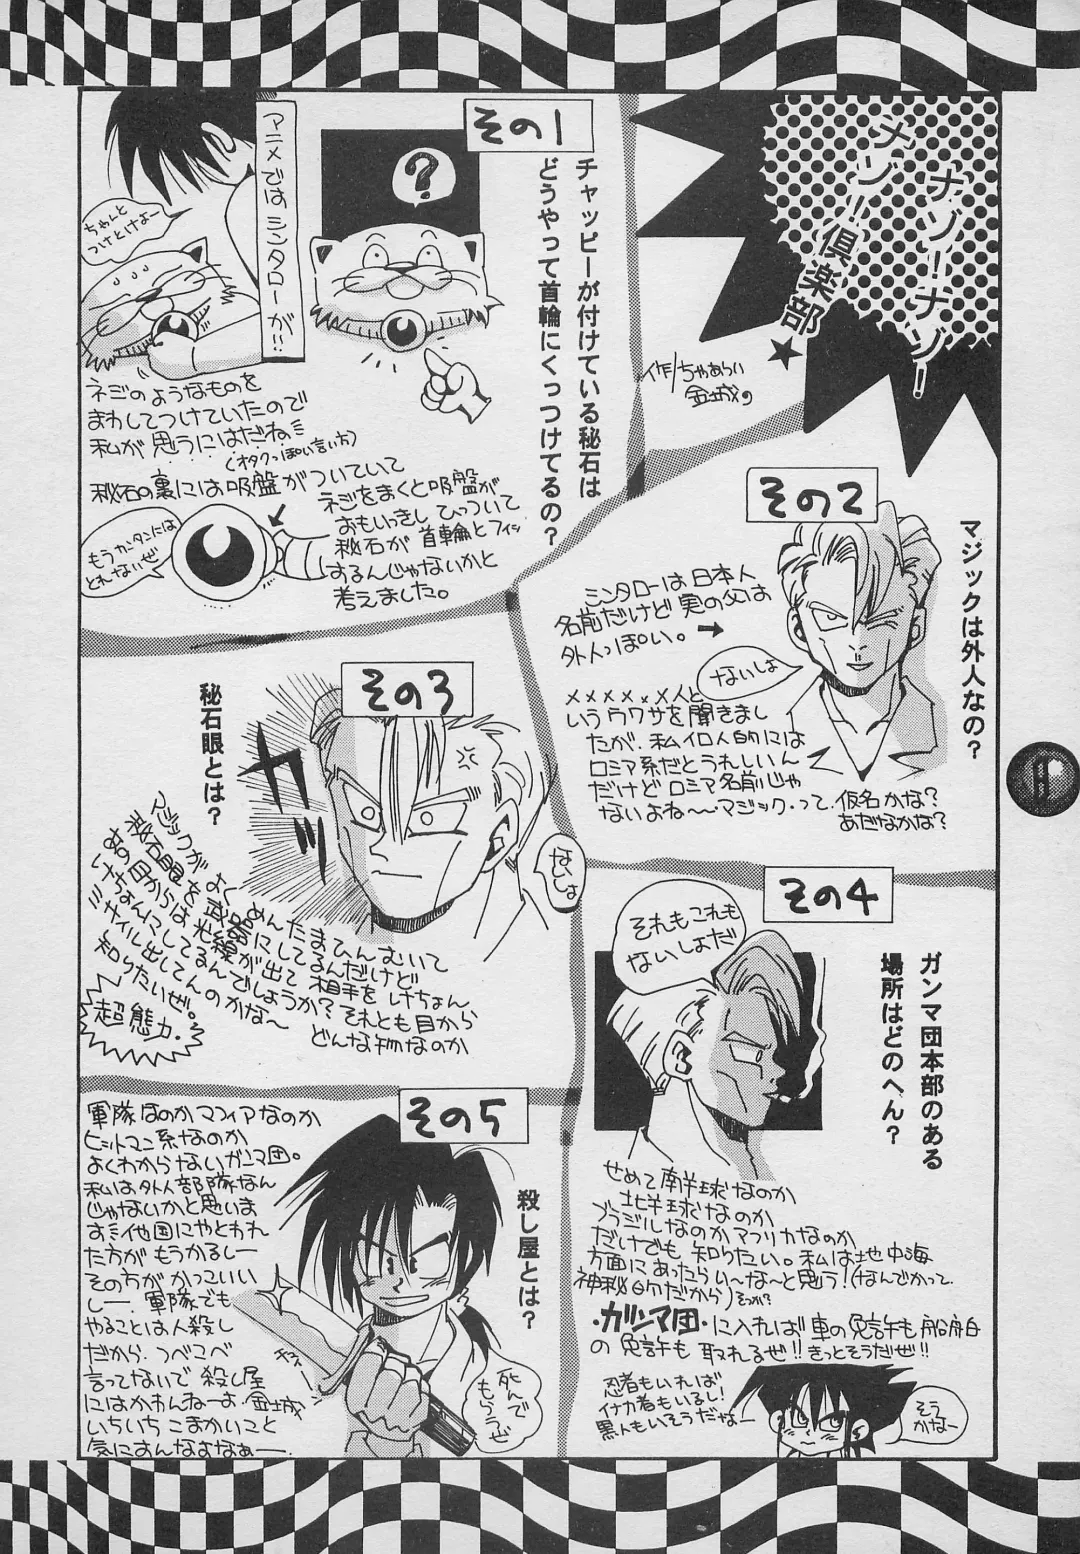 ナゾ！ナゾ！
ナゾー倶楽部★
作/ちゃあらい
金城。
その1
チャッピーが付けている秘石は
どうやって首輪にくっつけてるの？
?
アニメではシンタローが!!
ちゃんと
つけとけよー
ネジのようなものを
まわしてつけていたので
私が思うにはだね
(オタクっぽい言い方)
秘石の裏には吸盤がついていて
ネジをまくと吸盤が
おもいっきしひっついて
秘石が首輪とフィッ
するんじゃないかと
考えました。
もうカンタンには
とれないぜ
その2
マジックは外人なの？
シンタローは日本人
名前だけど実の父は
外人っぽい。→
ないしょ
××××××人と
いうウワサを聞きまし
たが、私イロ人的には
ロシア系だとうれしいん
だけどロシア名前じゃ
ないよね〜マジック・って、仮名かな？
あだなかな？
その3
秘石眼とは？
カッ
ないしょ
マジックがよくめんたまひんむいて
秘石眼を武器にしてるんだけど
あの目からは光線が出て相手をけちょん
けちょんにしてるんでしょうか？それとも目から
ミサイル出してんのかな〜どんな物なのか
知りたいぜ。
超態力.
その4
ガンマ団本部のある
場所はどのへん？
それもこれも
ないしょだ
せめて南半球なのか
北半球なのか
ブラジルなのかアフリカなのか
だけでも知りたい。私は地中海
方面にあったらい〜な〜と思う！(なんでかって、
神秘的だから)そっか？
・ガンマ団・に入れば車の免許も船舶
の免許も取れるぜ!!きっとそうだぜ!!
忍者もいれば
イナカ者もいるし！
黒人もいそうだな〜
そう
かな〜
その5
殺し屋とは？
軍隊なのかマフィアなのか
ヒットマン系なのか
よくわからないガンマ団。
私は外人部隊なん
じゃないかと思いま
すミ他国にやとわれ
た方がもうかるしー
その方がかっこいい
しー、軍隊でも
やることは人殺し
だから、つべこべ
言ってないで殺し屋
にはかわんねーよ、金城
いちいちこまかいこと
気にすんなよなぁー
死んで
もらうぜ